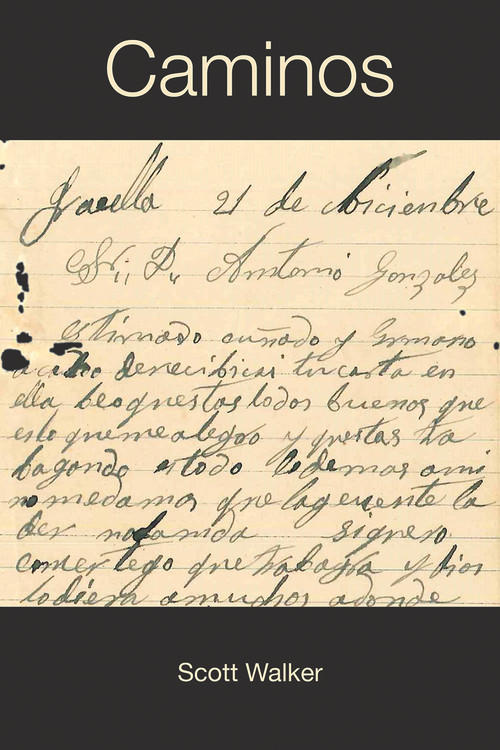 Caminos
21 de Diciembre
Sr. D. Antonio Gonzalez
estimado cuñado y Ermano
acabo derecibir tu carta en
ella beo questas todos buenos que
esto quemealegro y questas tra
bagando todo lo demas ami
nomedamas que lagente la
der nadamda siquero
comer tego que trabajar y dios
lodiera amuchos adonde
Scott Walker